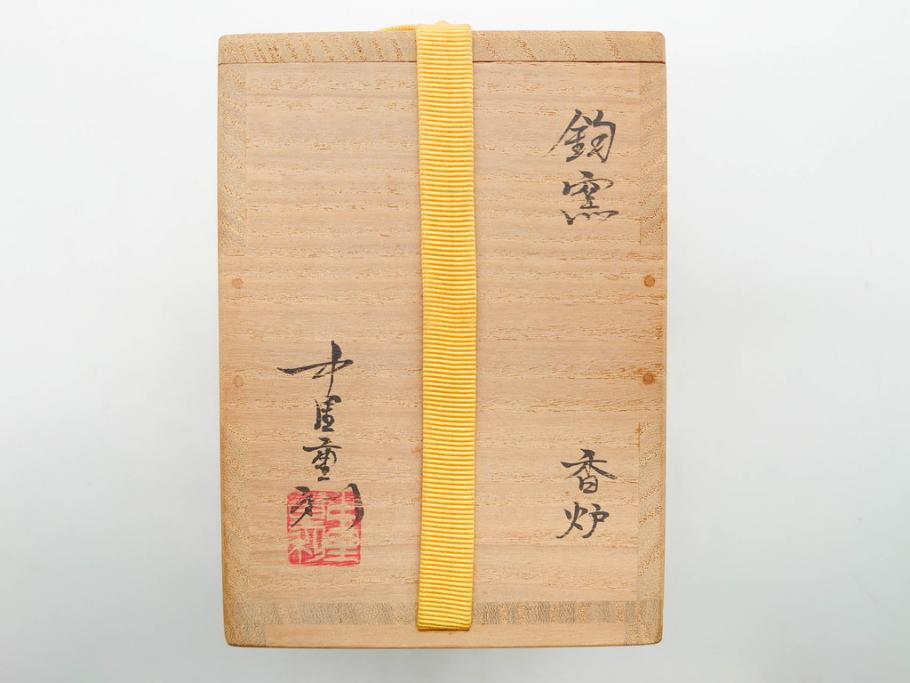 鈞窯
香炉
中里重利